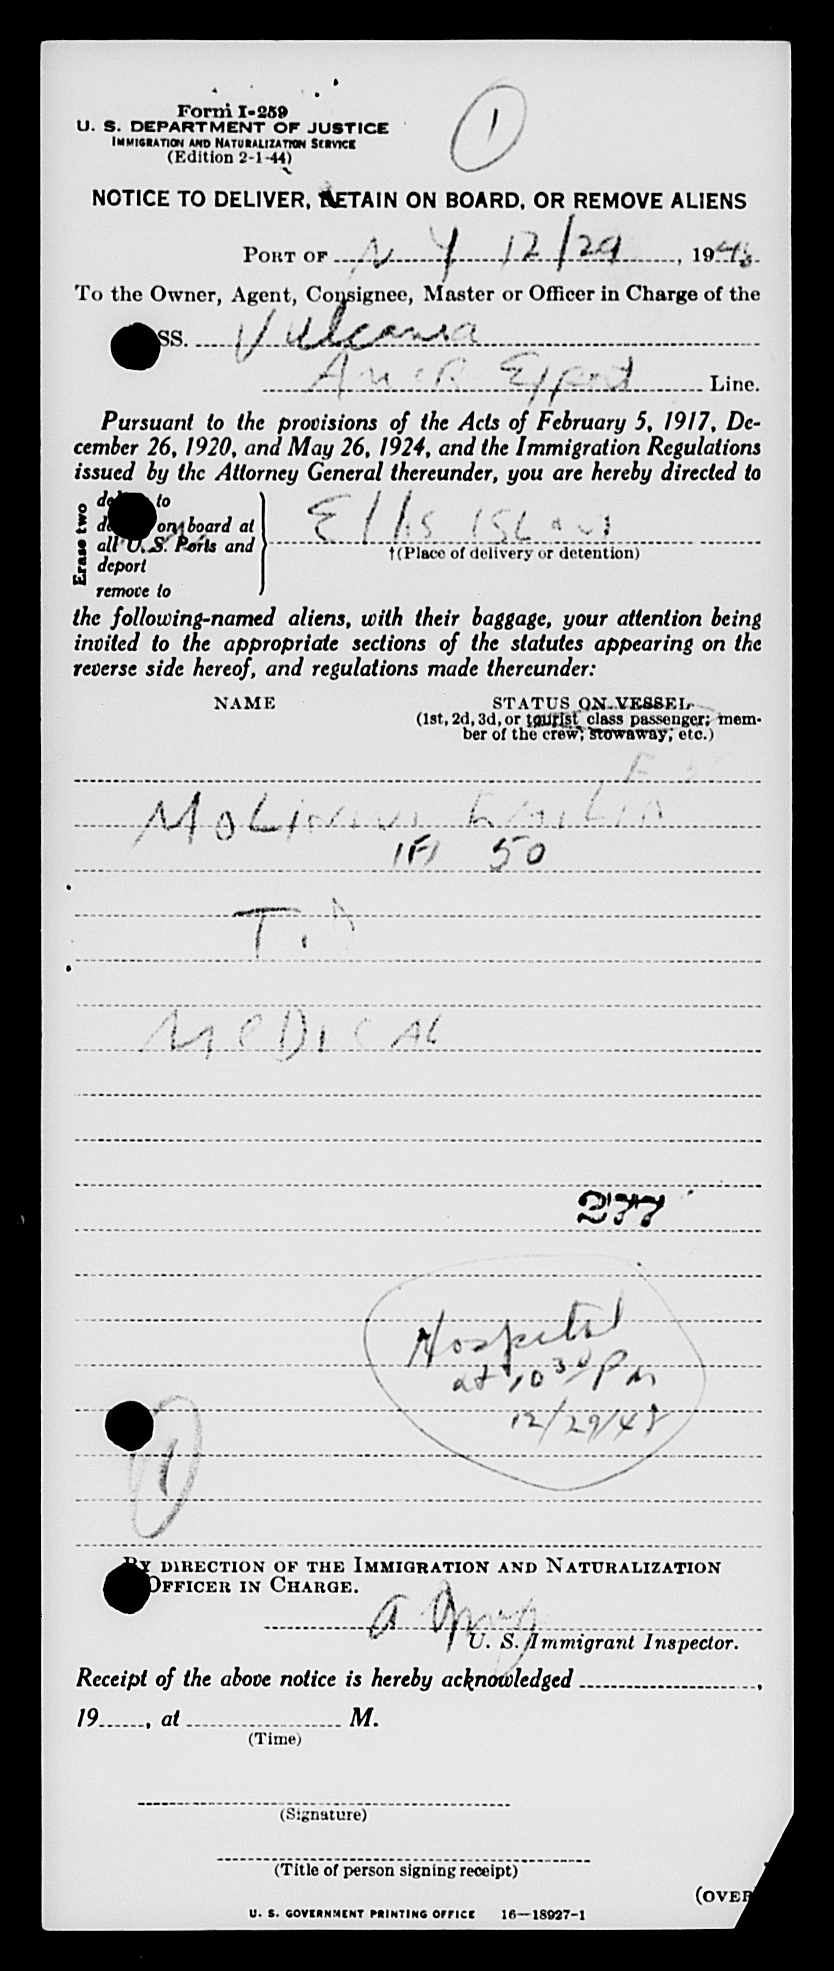 1
Form I-259
U. S. DEPARTMENT OF JUSTICE
IMMIGRATION AND NATURALIZATION SERVICE
(Edition 2-1-44)
NOTICE TO DELIVER, DETAIN ON BOARD, OR REMOVE ALIENS
PORT OF N Y 12/29, 1948
To the Owner, Agent, Consignee, Master or Officer in Charge of the
SS. Vulcania
Amer Export Line.
Pursuant to the provisions of the Acts of February 5, 1917, De-
cember 26, 1920, and May 26, 1924, and the Immigration Regulations
issued by the Attorney General thereunder, you are hereby directed to
Erase two
to
on board at
all U. S. Ports and
deport
remove to
Ellis Island
†(Place of delivery or detention)
the following-named aliens, with their baggage, your attention being
invited to the appropriate sections of the statutes appearing on the
reverse side hereof, and regulations made thereunder:
NAME STATUS ON VESSEL
(1st, 2d, 3d, or tourist class passenger; mem-
ber of the crew; stowaway; etc.)
(F) 50
T.D
MEDICAL
277
Hospital
at 10 30 PM
12/29/48
1
BY DIRECTION OF THE IMMIGRATION AND NATURALIZATION
OFFICER IN CHARGE.
U. S. Immigrant Inspector.
Receipt of the above notice is hereby acknowledged ,
19 , at M.
(Time)
(Signature)
(Title of person signing receipt)
(OVER
U. S. GOVERNMENT PRINTING OFFICE 16—18927-1